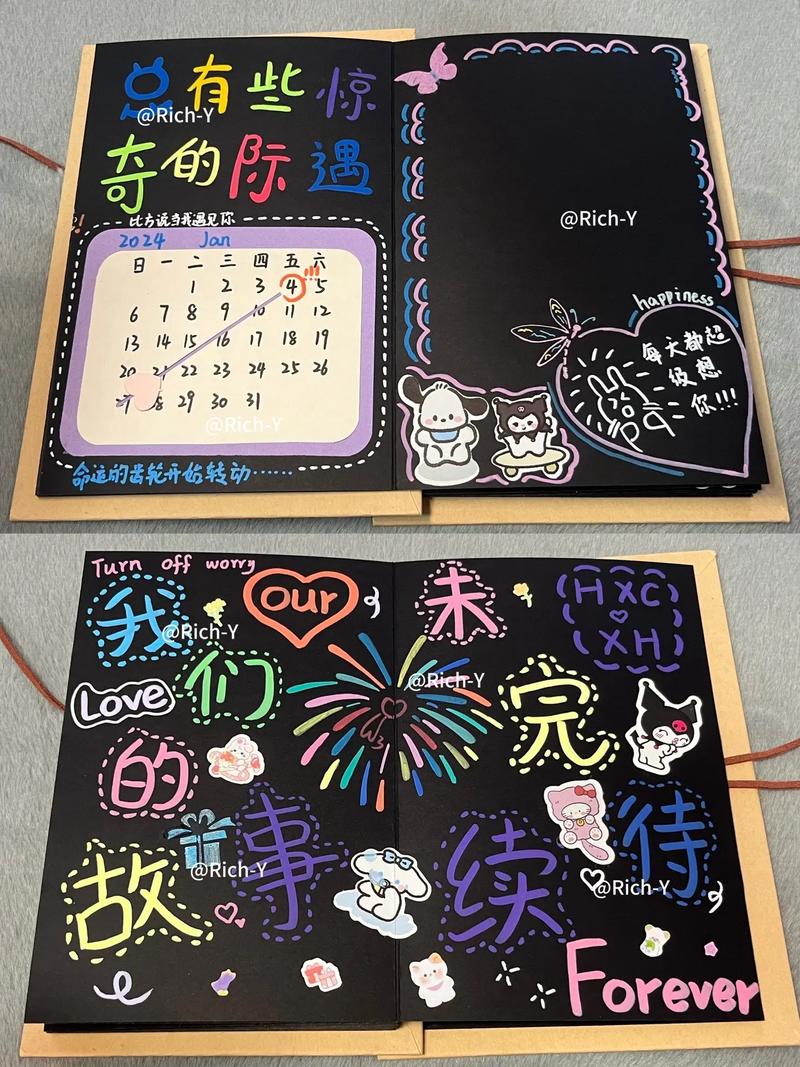 总有些惊
奇的际遇
比方说当我遇见你
2024 Jan
日 一 二 三 四 五 六
1 2 3 4 5
6 7 8 9 10 11 12
13 14 15 16 17 18 19
20 21 22 23 24 25 26
29 30 31
命运的齿轮开始转动······
happiness
每天都超
级想
你!!!
@Rich-Y
@Rich-Y
@Rich-Y
Turn off worry
我们的故事
our
Love
未完待续
H X C
X H
Forever
@Rich-Y
@Rich-Y
@Rich-Y
@Rich-Y